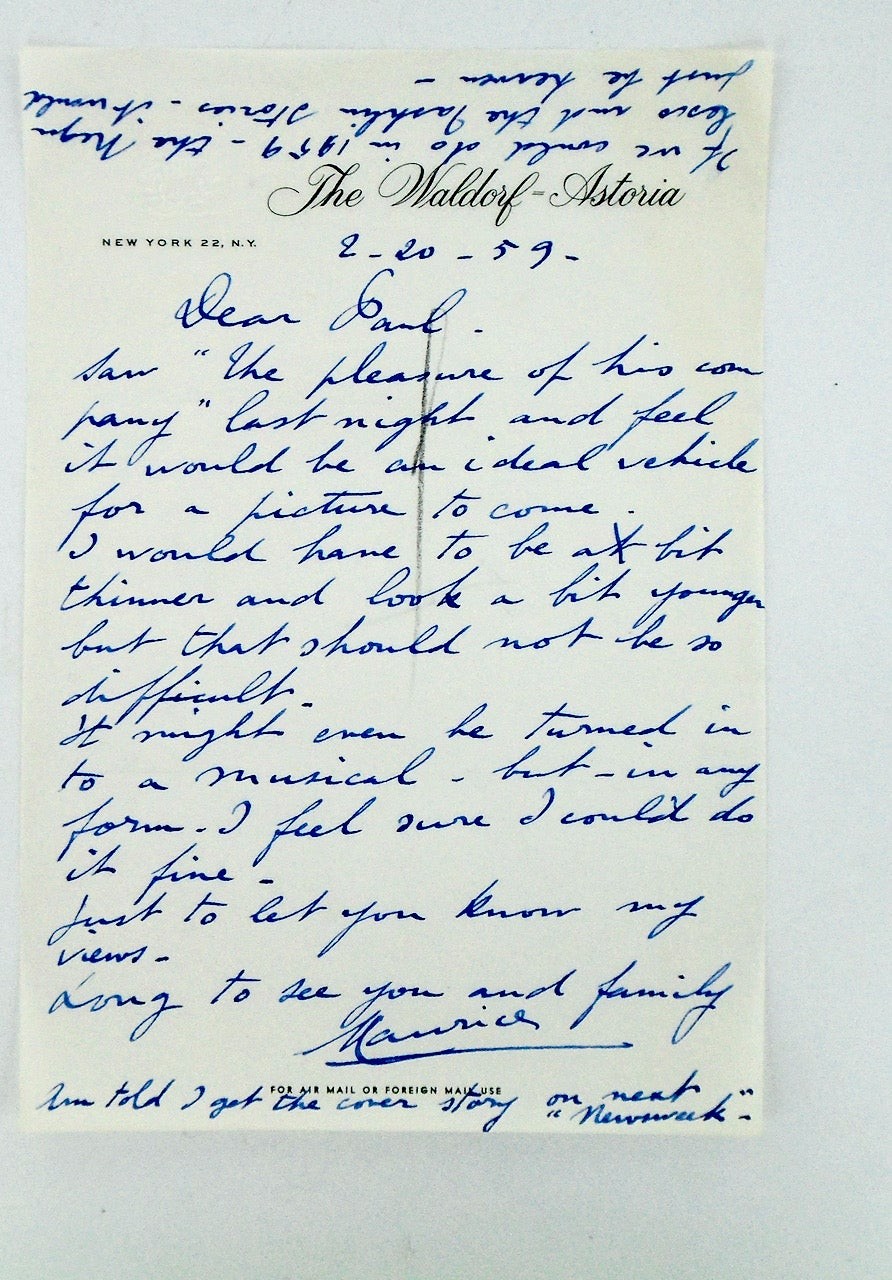 The Waldorf=Astoria
NEW YORK 22, N.Y.
2-20-59-
Dear Paul.
saw "the pleasure of his com
pany" last night and feel
it would be an ideal vehicle
for a picture to come.
I would have to be a bit
thinner and look a bit younger
but that should not be so
difficult.
It might even be turned in
to a musical - but - in any
form - I feel sure I could do
it fine -
Just to let you know my
views -
Long to see you and family
Maurice
FOR AIR MAIL OR FOREIGN MAIL USE
Am told I get the cover story on next
"Newsweek" -
If we could do in 1959 - the
and the Tashlin stories - it would
just be heaven -